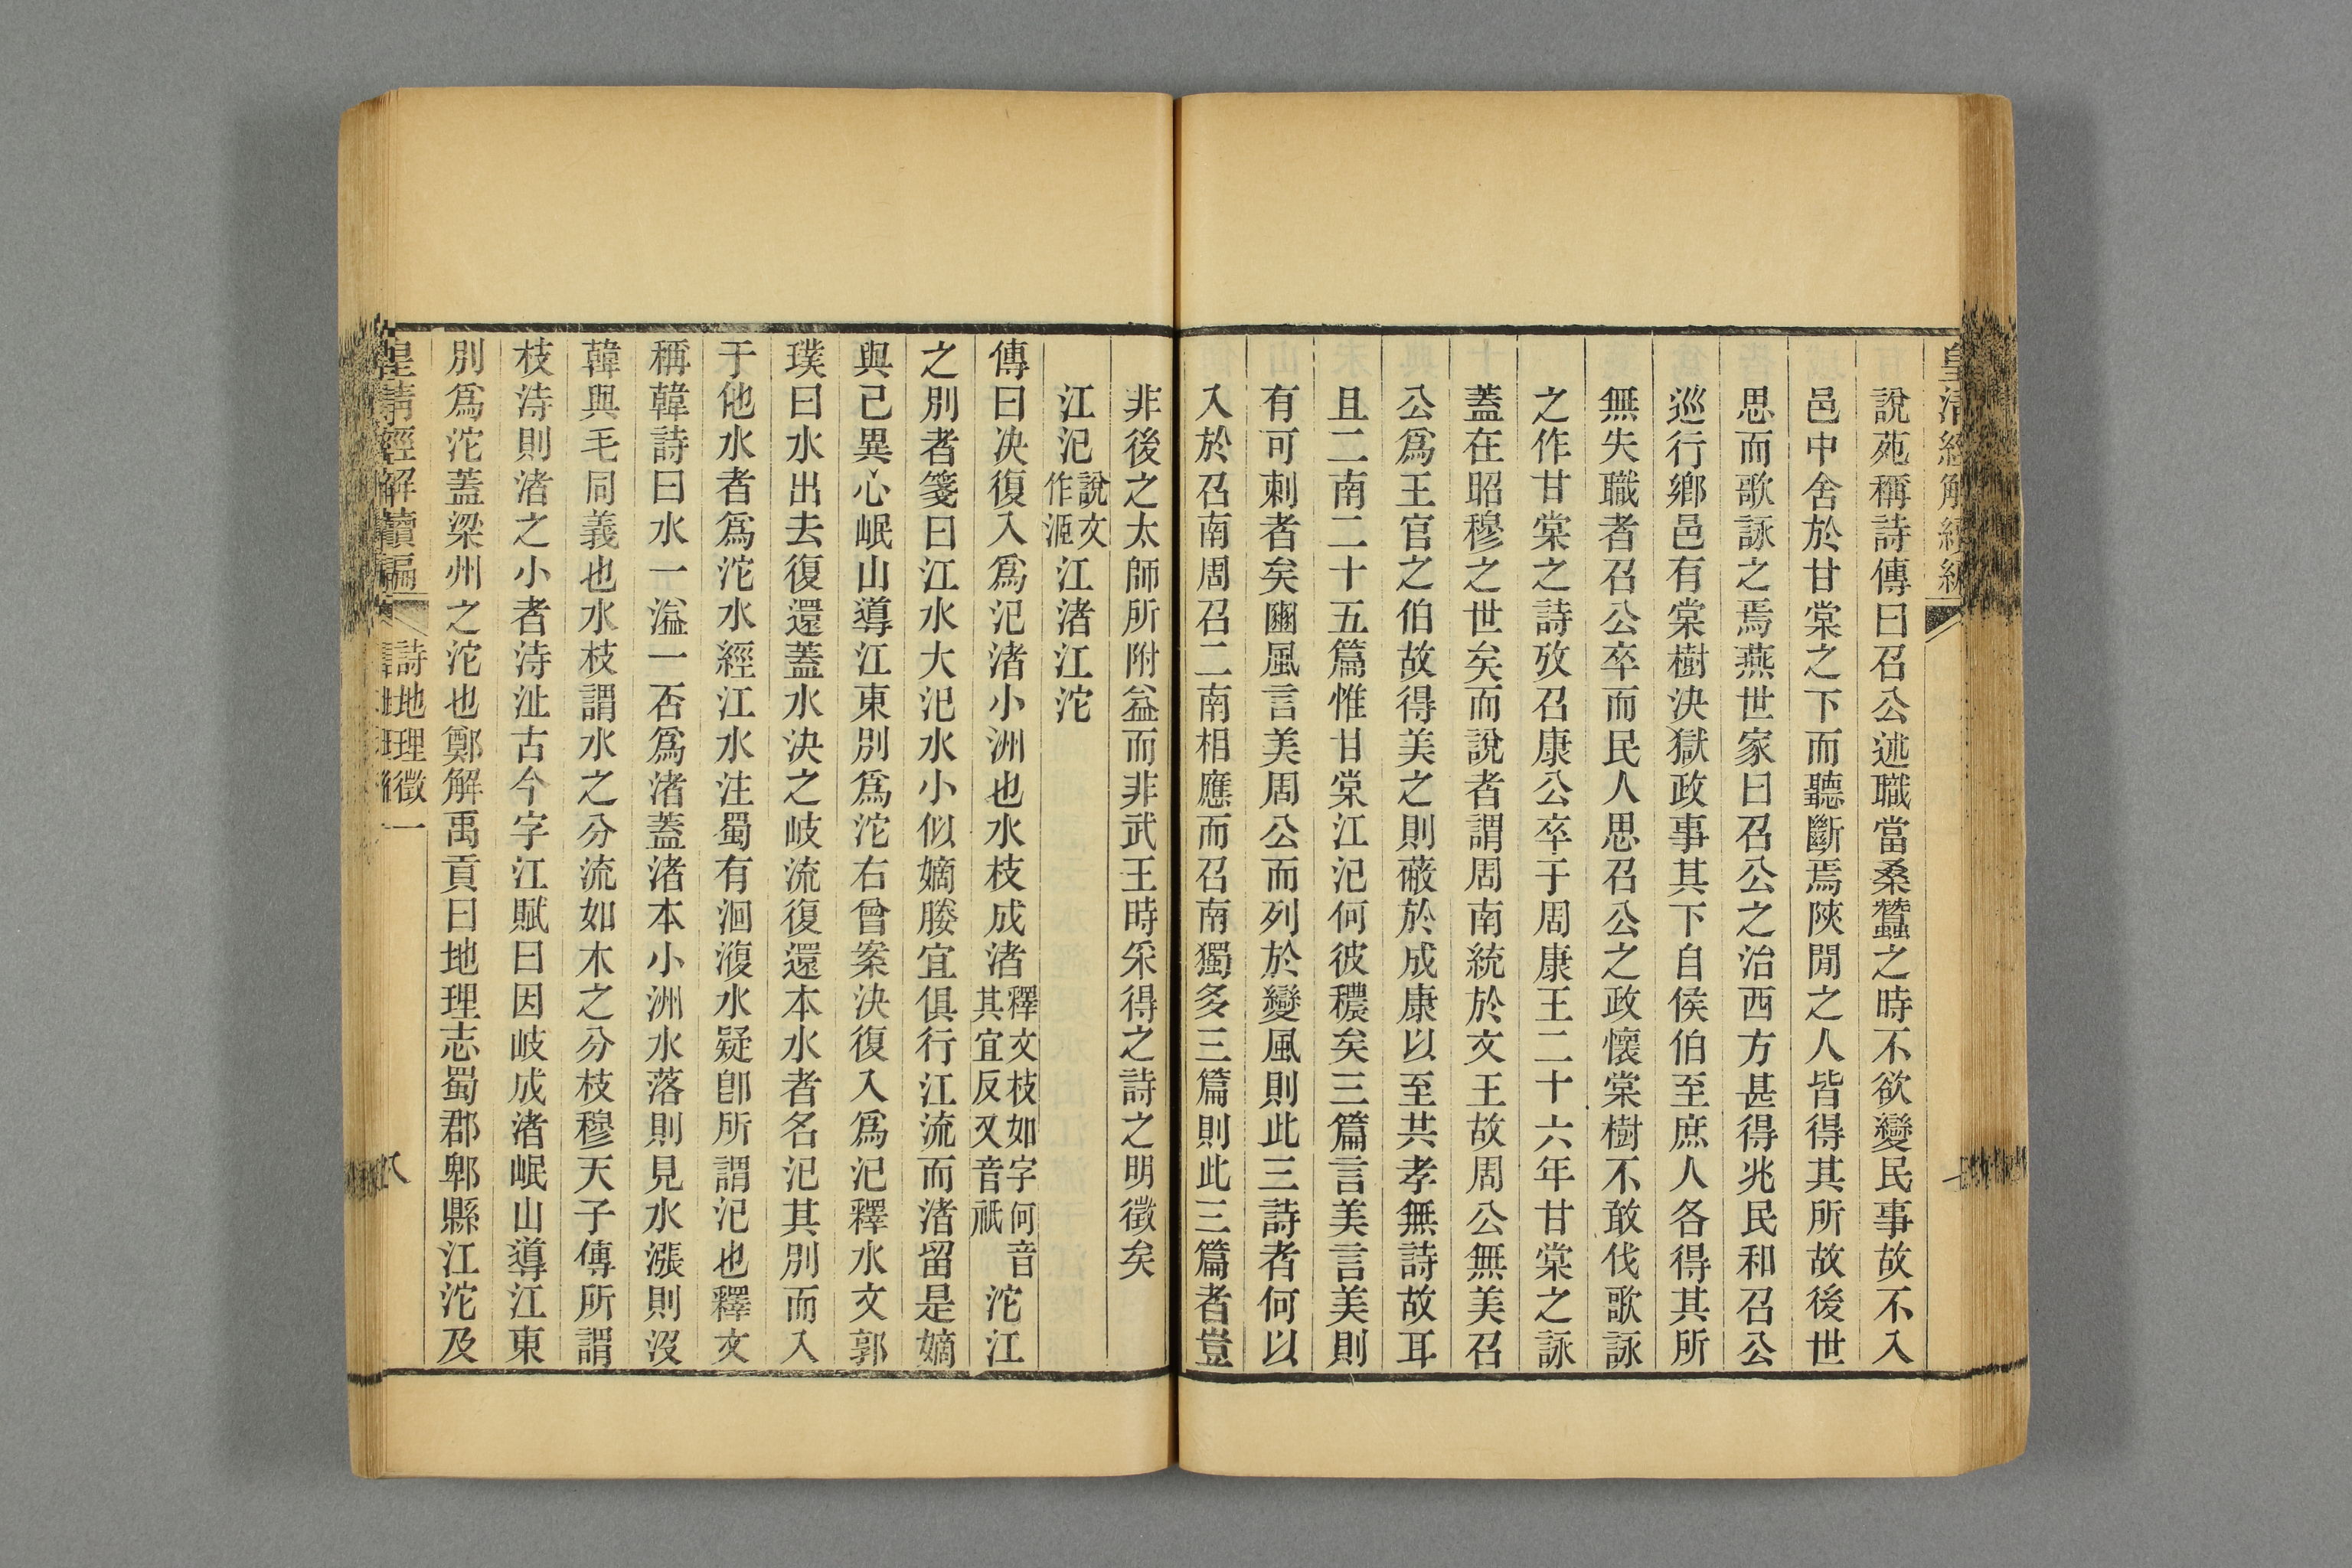 皇清經解續編
說苑稱詩傳曰召公述職當桑蠶之時不欲變民事故不入
邑中舍於甘棠之下而聽斷焉陝閒之人皆得其所故後世
思而歌詠之焉燕世家曰召公之治西方甚得兆民和召公
巡行鄉邑有棠樹決獄政事其下自侯伯至庶人各得其所
無失職者召公卒而民人思召公之政懷棠樹不敢伐歌詠
之作甘棠之詩攷召康公卒于周康王二十六年甘棠之詠
蓋在昭穆之世矣而說者謂周南統於文王故周公無美召
公爲王官之伯故得美之則蔽於成康以至共孝無詩故耳
且二南二十五篇惟甘棠江汜何彼穠矣三篇言美言美則
有可刺者矣豳風言美周公而列於變風則此三詩者何以
入於召南周召二南相應而召南獨多三篇則此三篇者豈
非後之太師所附益而非武王時采得之詩之明徵矣
江汜說文作洍江渚江沱
傳曰决復入爲汜渚小洲也水枝成渚釋文枝如字何音其宜反又音祇沱江
之別者箋曰江水大汜水小似嫡媵宜俱行江流而渚留是嫡
與己異心岷山導江東別爲沱右曾案決復入爲汜釋水文郭
璞曰水出去復還蓋水決之岐流復還本水者名汜其別而入
于他水者爲沱水經江水注蜀有洄澓水疑卽所謂汜也釋文
稱韓詩曰水一溢一否爲渚蓋渚本小洲水落則見水漲則沒
韓與毛同義也水枝謂水之分流如木之分枝穆天子傳所謂
枝洔則渚之小者洔沚古今字江賦曰因岐成渚岷山導江東
別爲沱蓋梁州之沱也鄭解禹貢曰地理志蜀郡郫縣江沱及
皇清經解續編 詩地理徵一 八